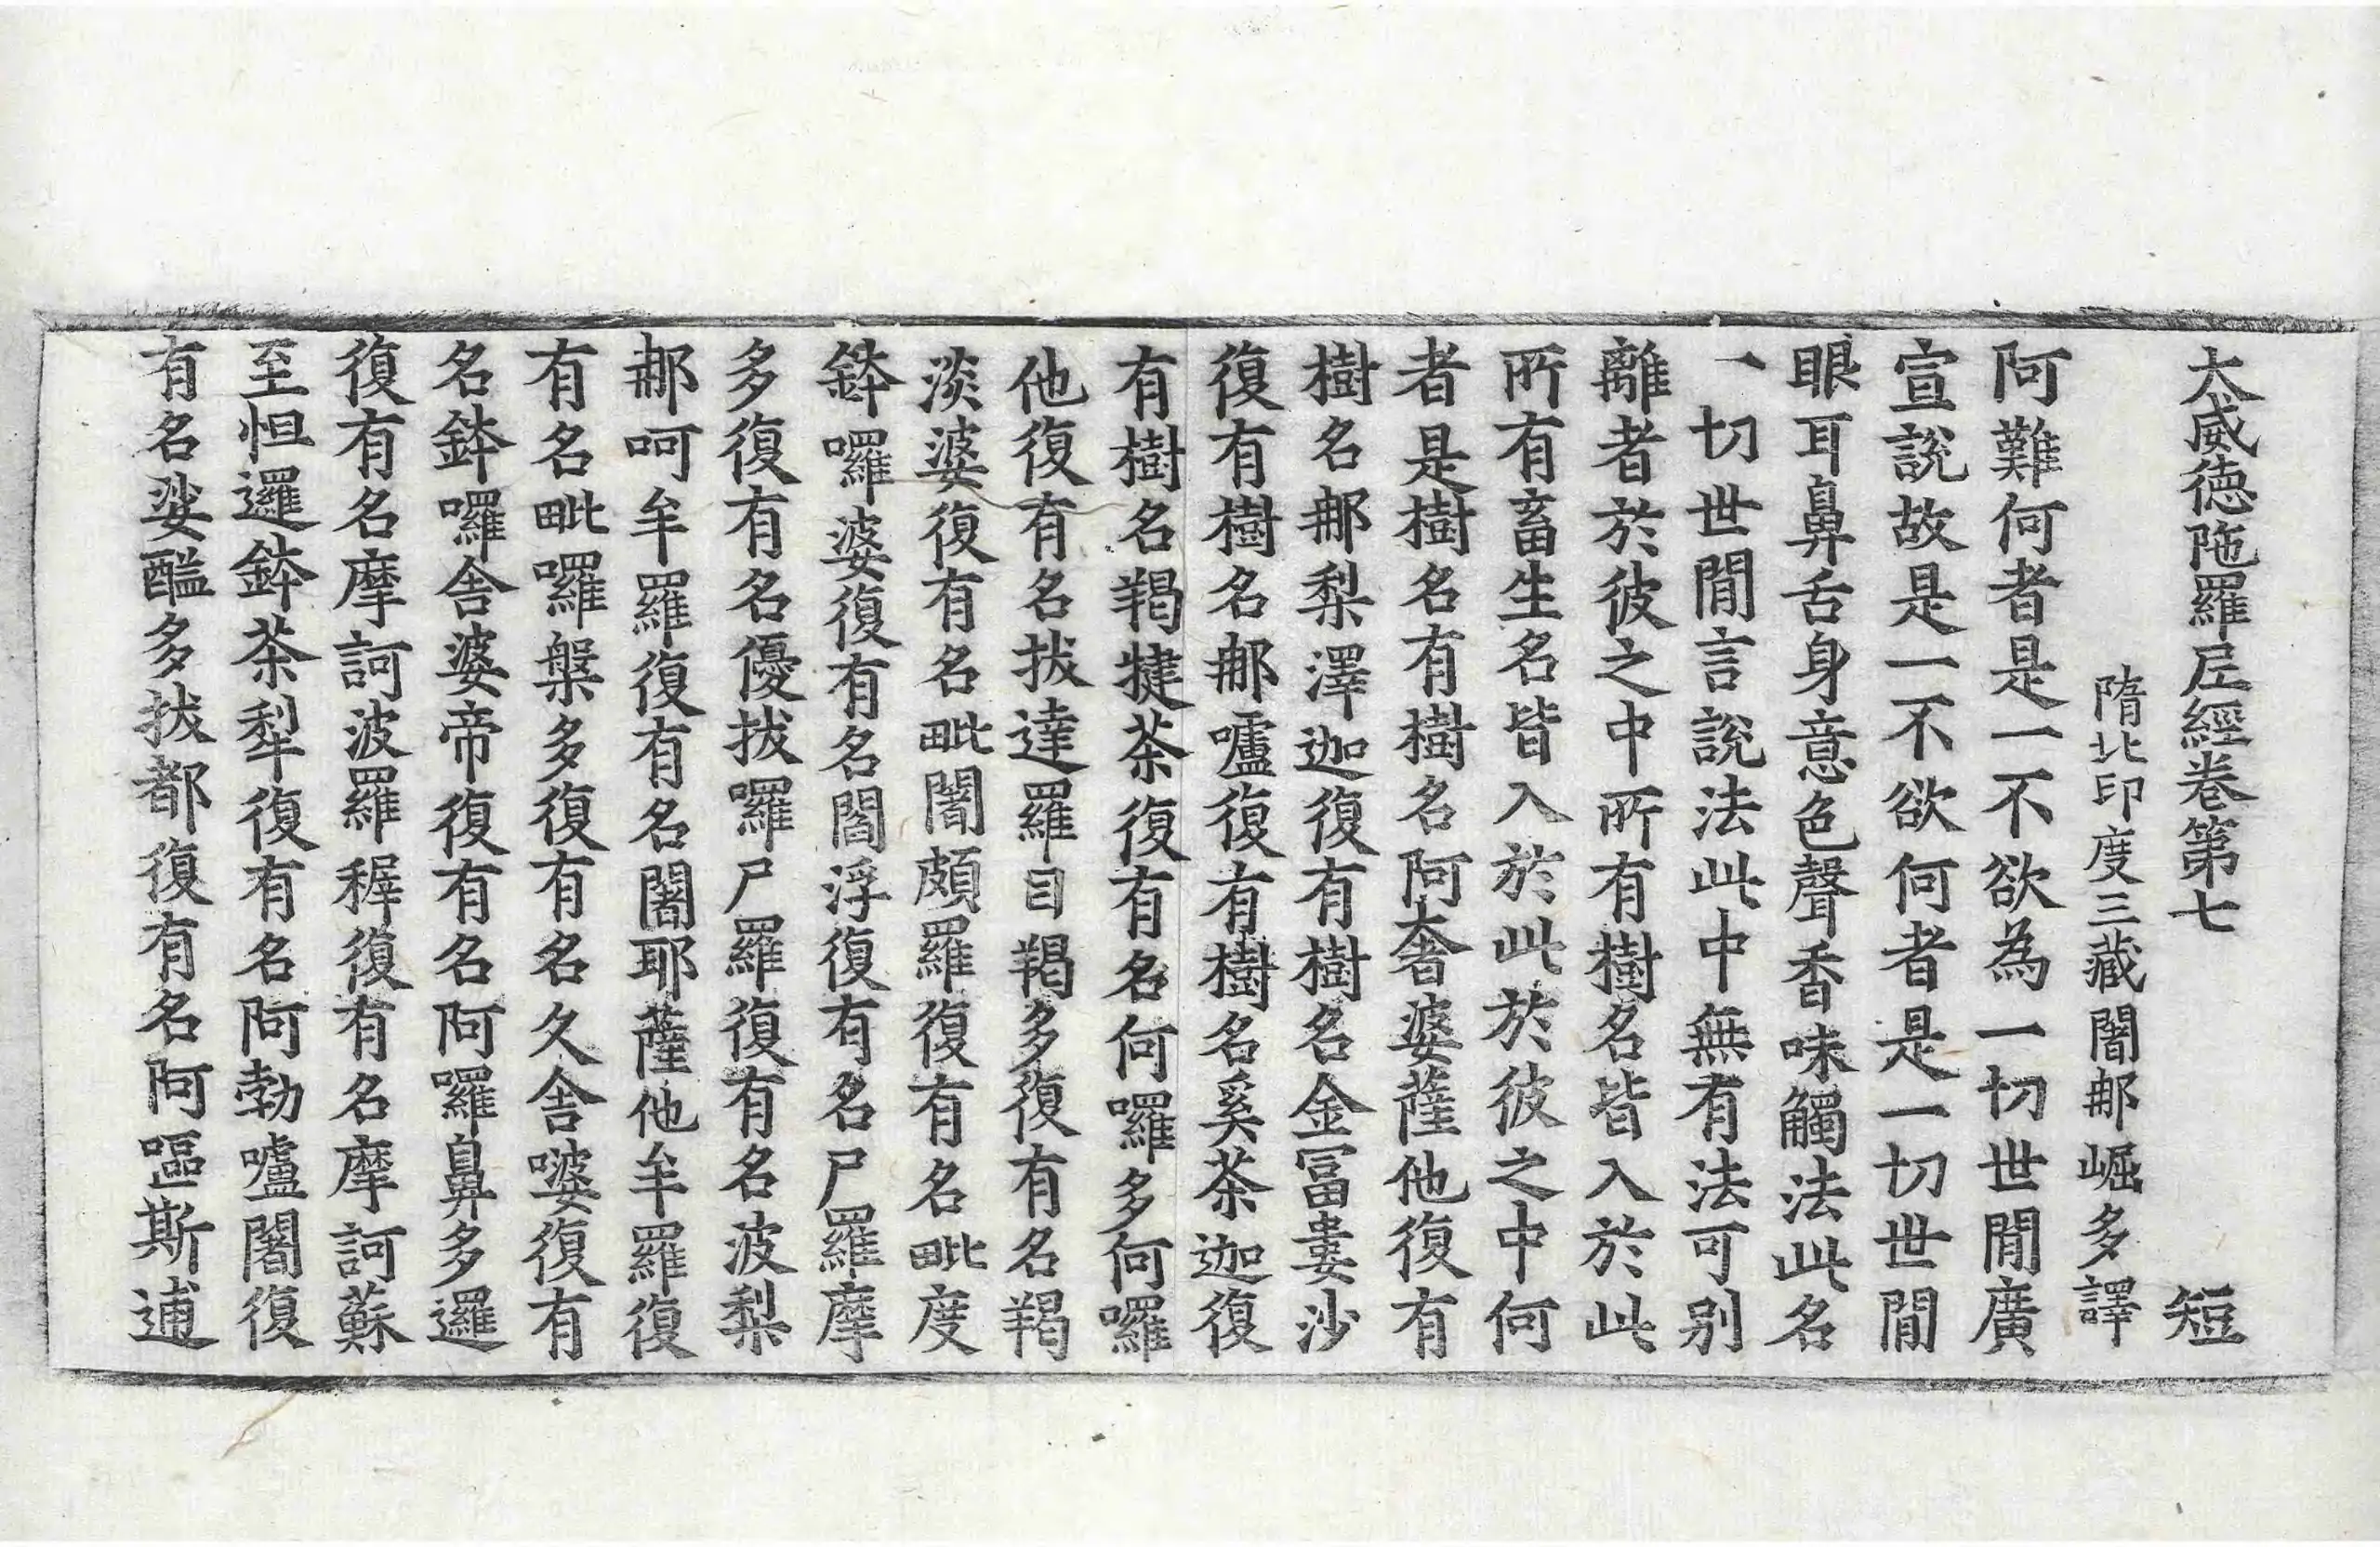 大威德陁羅尼經卷第七　短
隋北印度三藏闍那崛多譯
阿難何者是一不欲為一切世閒廣
宣說故是一不欲何者是一切世閒
眼耳鼻舌身意色聲香味觸法此名
一切世閒言說法此中無有法可別
離者於彼之中所有樹名皆入於此
所有畜生名皆入於此於彼之中何
者是樹名有樹名阿奢婆薩他復有
樹名那梨澤迦復有樹名金富婁沙
復有樹名那嚧復有樹名奚茶迦復
有樹名羯揵茶復有名何囉多何囉
他復有名拔達羅目羯多復有名羯
淡婆復有名毗闍頗羅復有名毗度
鉢囉婆復有名閻浮復有名尸羅摩
多復有名優拔囉尸羅復有名波梨
那呵牟羅復有名闍耶薩他牟羅復
有名毗囉槃多復有名久舍婆復有
名鉢囉舍婆帝復有名阿囉鼻多邏
復有名摩訶波羅稺復有名摩訶蘇
至怛邏鉢茶犁復有名阿勃嚧闍復
有名娑醯多拔都復有名阿嘔斯逋